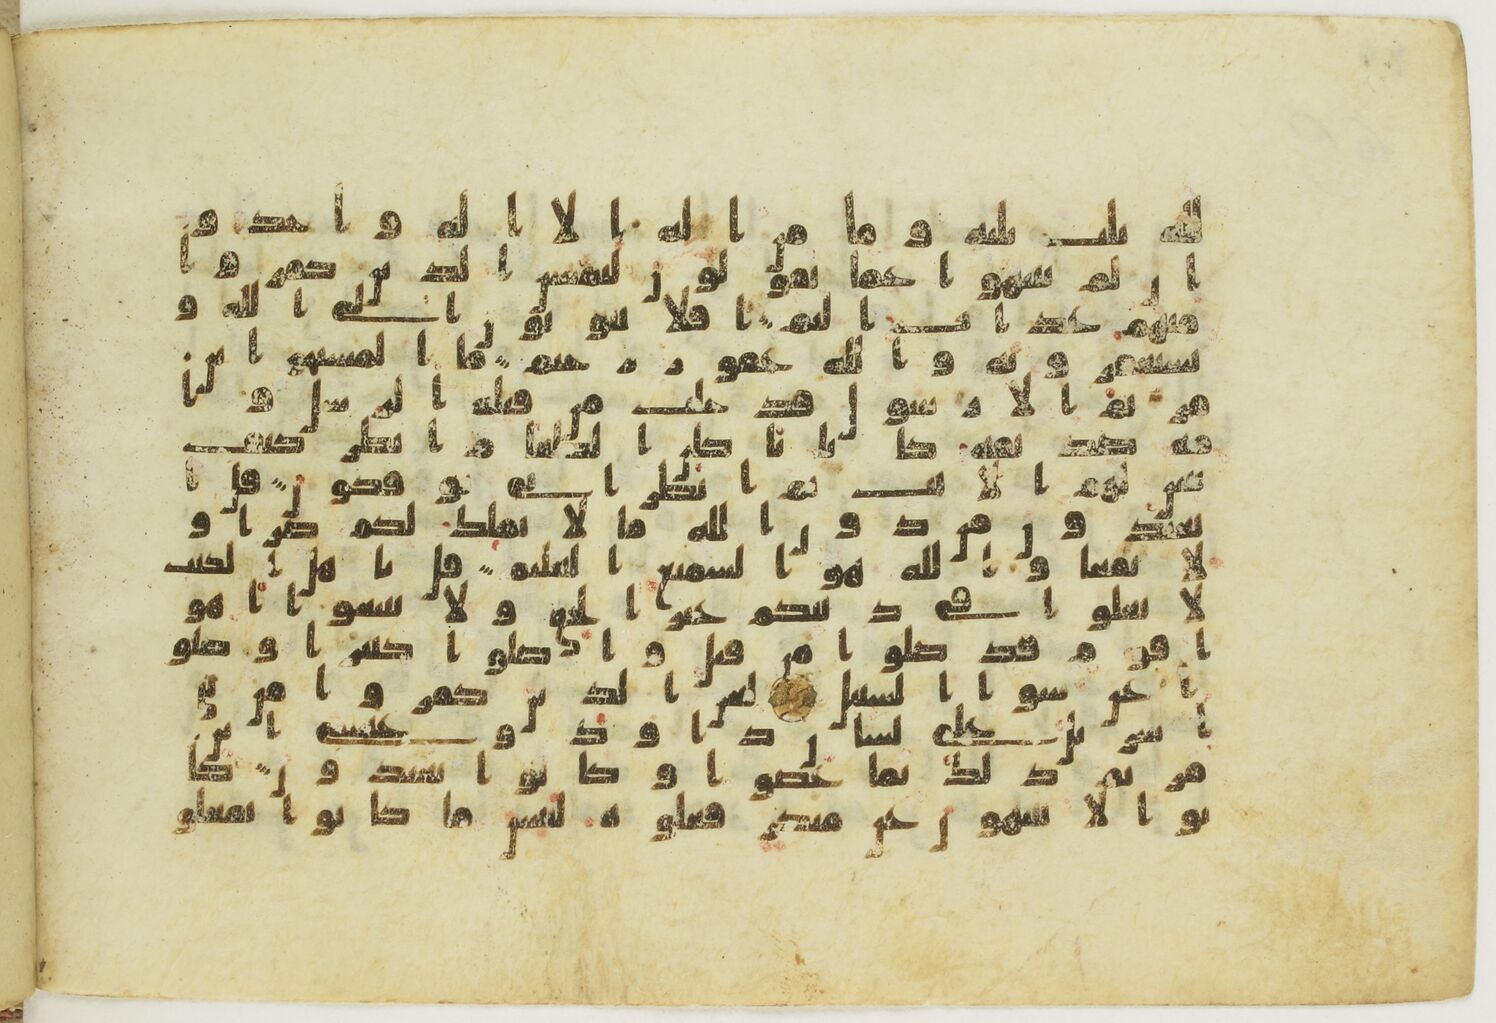 الله ثلث ثلثه وما من اله الا اله واحد و
ان لم ينتهوا عما يقولون ليمسن الذين كفروا
منهم عذاب اليم افلا يتوبون الى الله و
يستغفرونه والله غفور رحيم ما المسيح ابن
مريم الا رسول قد خلت من قبله الرسل وا
مه صديقه كانا ياكلان الطعام انظر كيف
نبين لهم الايت ثم انظر انى يوفكون قل ا
تعبدون من دون الله ما لا يملك لكم ضرا و
لا نفعا والله هو السميع العليم قل ياهل الكتب
لا تغلوا في دينكم غير الحق ولا تتبعوا اهو
ا قوم قد ضلوا من قبل واضلوا كثيرا وضلو
ا عن سوا السبيل لعن الذين كفروا من بني
اسريل على لسان داود وعيسى ابن
مريم ذلك بما عصوا وكانوا يعتدون كا
نوا لا يتنهون عن منكر فعلوه لبيس ما كانوا يفعلو